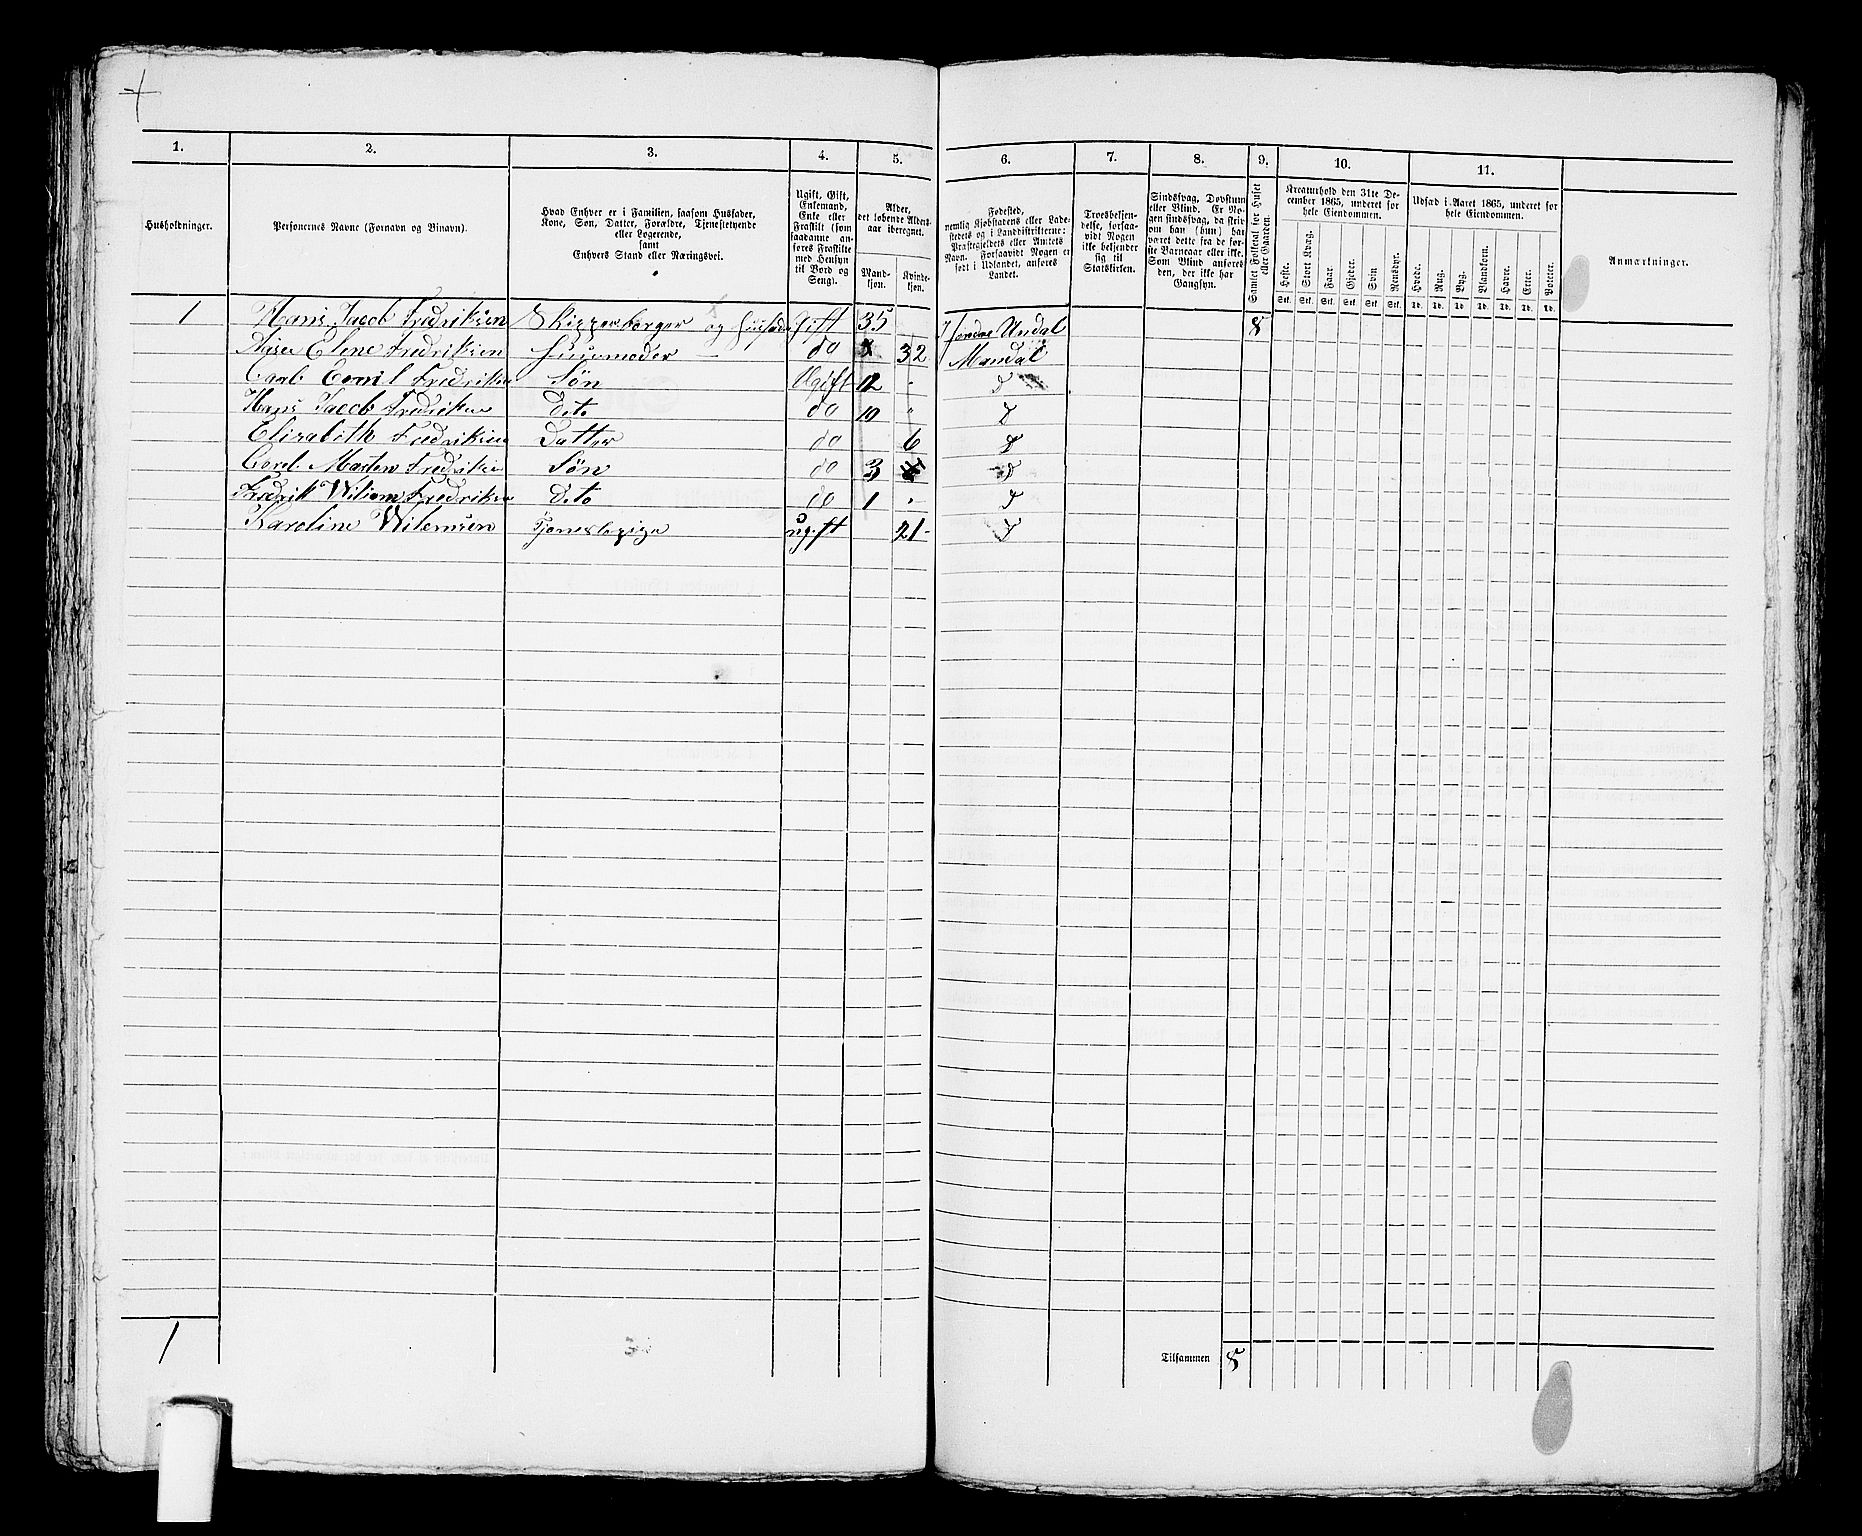 1. 2. 3. 4. 5. 6. 7. 8. 9. 10. 11.
Husholdninger.
Personernes Navne (Fornavn og Binavn).
Hvad Enhver er i Familien, saasom Husfader,
Kone, Søn, Datter, Forældre, Tjenestetyende
eller Logerende,
samt
Enhvers Stand eller Næringsvei.
Ugift, Gift,
Enkemand,
Enke eller
Fraskilt (som
saadanne an-
føres Fraskilte
med Hensyn
til Bord og
Seng).
Alder,
det løbende Alders-
aar iberegnet.
Mand-
kjøn.
Kvinde-
kjøn.
Fødested,
nemlig Kjøbstadens eller Lade-
stedets og i Landdistrikterne:
Præstegjeldets eller Amtets
Navn. Forsaavidt Nogen er
født i Udlandet, anføres
Landet.
Troesbekjen-
delse, forsaa-
vidt Nogen
ikke bekjender
sig til
Statskirken.
Sindssvag, Døvstum
eller Blind. Er No-
gen sindssvag, da skriv
om han (hun) har
været dette fra de før-
ste Barneaar eller ikke.
Som Blind anføres
den, der ikke har
Gangsyn.
Samlet Folketal for Huset
eller Gaarden.
Kreaturhold den 31te De-
cember 1865, underet for
hele Eiendommen.
Heste. Stort Kvæg. Faar. Gjeder. Svin Rensdyr.
Stk. Stk. Stk. Stk. Stk. Stk.
Udsæd i Aaret 1865, underet for
hele Eiendommen.
Hvede. Rug. Byg. Blandkorn. Havre. Erter. Poteter.
Td. Td. Td. Td. Td. Td. Td.
Anmærkninger.
1 Hans Jacob Fredriksen Skipperborger og Husfader Gift 35 Undal 8
Elene Fredriksen Huusmoder do 32 Mandal
Carl Emil Fredriksen Søn Ugift 12 d
Hans Jacob Fredriksen dito do 10 d
Elizabeth Fredriksen Datter do 6 d
Carel Marten Fredriksen Søn do 3 d
Fredrik Wiliam Fredriksen dito do 1 d
Karoline Wilemsen Tjenestepige ugift 21 d
1 Tilsammen 8